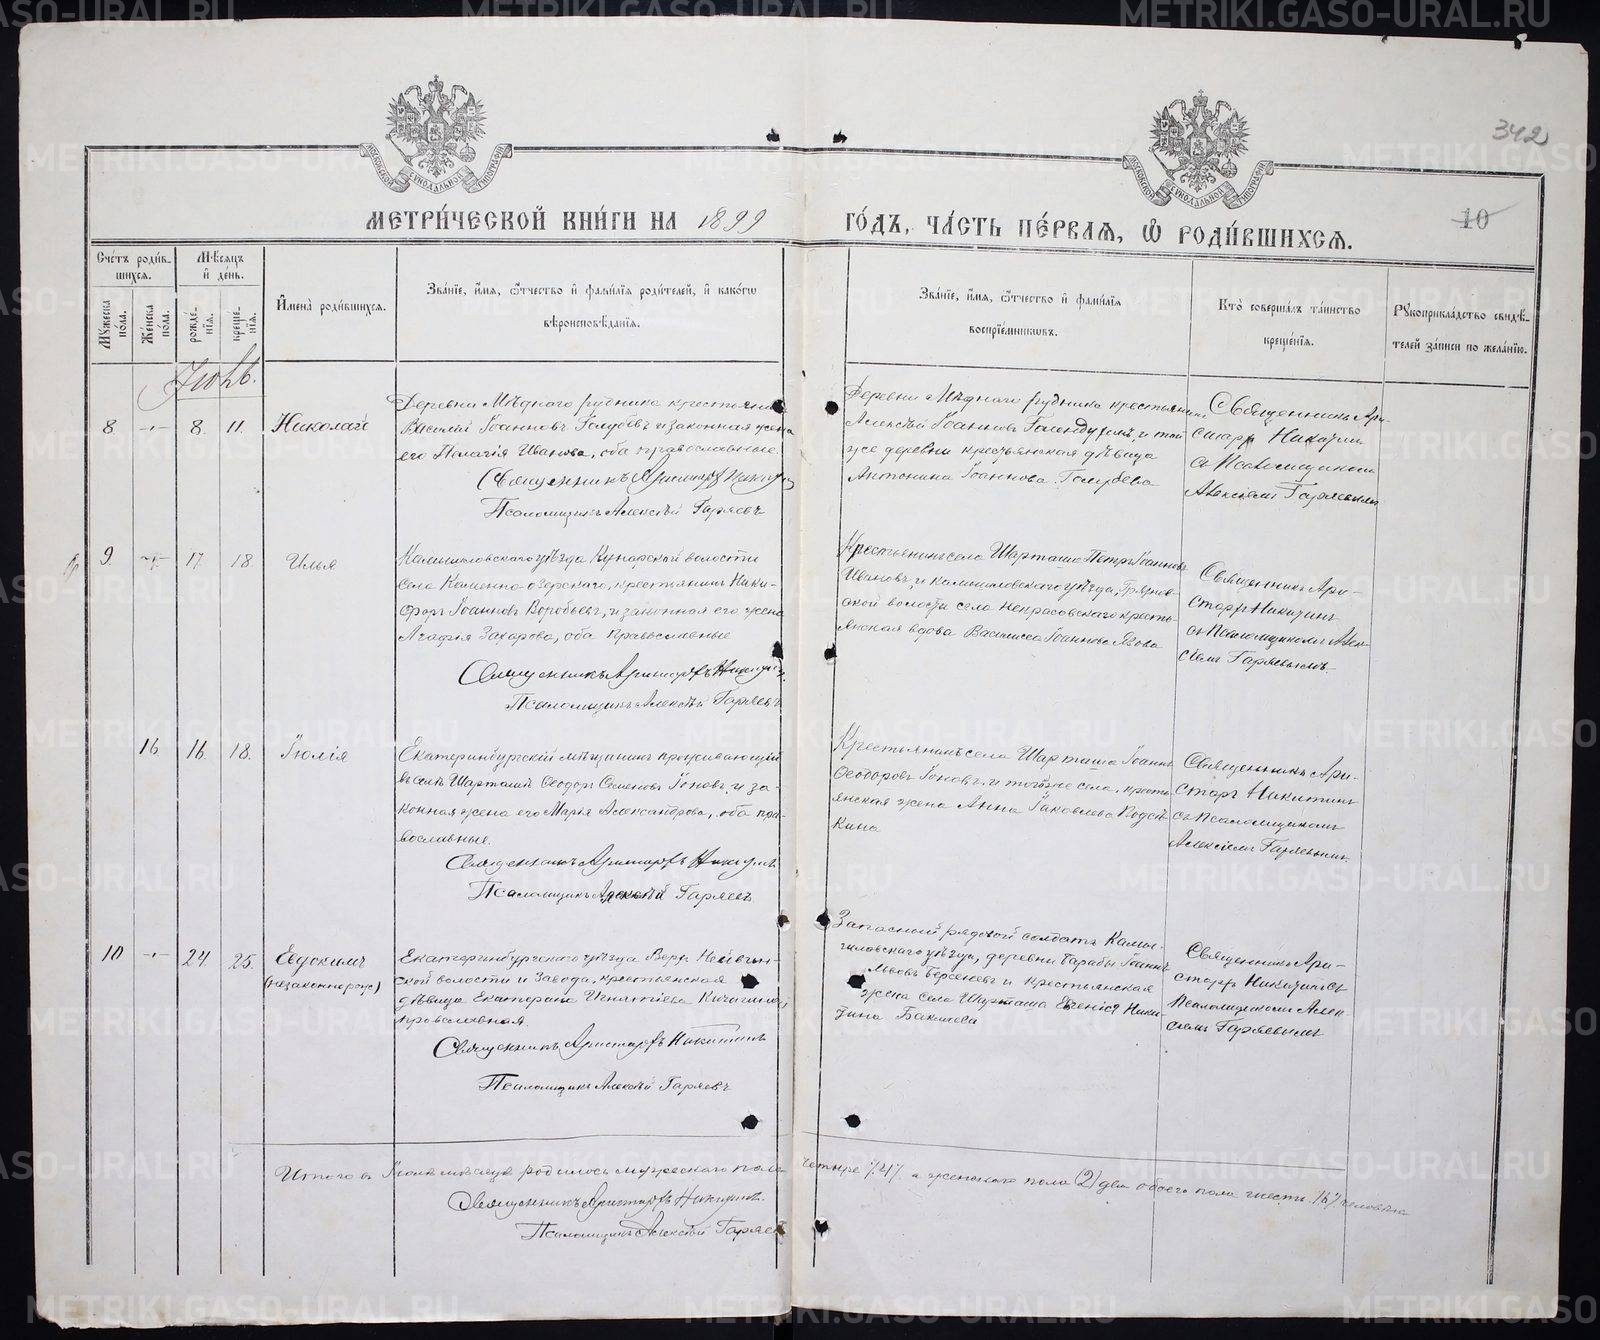 342
МЕТРИЧЕСКОЙ КНИГИ НА 1899
ГОДЪ, ЧАСТЬ ПЕРВАЯ, Ѡ РОДИВШИХСЯ.
10
Счетъ родившихся.
Мужеска пола.
Женска пола.
Мѣсяцъ и день.
рожденія.
крещенія.
Имена родившихся.
Званіе, имя, отчество и фамилія родителей, и какого
вѣроисповѣданія.
Званіе, имя, отчество и фамилія
воспріемниковъ.
Кто совершалъ таинство
крещенія.
Рукоприкладство свидѣ-
телей записи по желанію.
Іюль.
8. 8. 11. Николай
Деревни Мѣднаго рудника крестьянинъ
Василій Іоанновъ Голубевъ и законная жена
его Пелагія Иванова, оба православные.
Священникъ Аристархъ Никитинъ
Псаломщикъ Алексѣй Гаряевъ
Деревни Мѣднаго рудника крестьянинъ
Алексѣй Іоанновъ и той
же деревни крестьянская дѣвица
Антонина Іоаннова Голубева
Священникъ Ари-
стархъ Никитинъ
съ Псаломщикомъ
Алексѣемъ Гаряевымъ
9. 17. 18. Илья
Камышловскаго уѣзда Кунарской волости
села Каменно-озерскаго, крестьянинъ Ники-
форъ Іоанновъ Воробьевъ, и законная его жена
Агафія Захарова, оба православные
Священникъ Аристархъ Никитинъ
Псаломщикъ Алексѣй Гаряевъ
Крестьянинъ села Шарташа Петръ Іоанновъ
Ивановъ, и Камышловскаго уѣзда, Грязнов-
ской волости села Некрасовскаго кресть-
янская вдова Василисса Іоаннова
Священникъ Ари-
стархъ Никитинъ
съ Псаломщикомъ Алек-
сѣемъ Гаряевымъ.
16. 16. 18. Іюлія
Екатеринбургскій мѣщанинъ проживающій
въ селѣ Шарташѣ Ѳеодоръ Семеновъ Іоновъ, и за-
конная жена его Марія Александрова, оба пра-
вославные.
Священникъ Аристархъ Никитинъ
Псаломщикъ Алексѣй Гаряевъ
Крестьянинъ села Шарташа Іоаннъ
Ѳеодоровъ Іоновъ, и того же села, кресть-
янская жена Анна Іаковлева
кина
Священникъ Ари-
стархъ Никитинъ
съ Псаломщикомъ
Алексѣемъ Гаряевымъ.
10 24. 25. Евдокимъ
(незаконнорож)
Екатеринбургскаго уѣзда Верх Нейвин-
ской волости и Завода, крестьянская
дѣвица Екатерина Игнатіева Кичигина
православная.
Священникъ Аристархъ Никитинъ
Псаломщикъ Алексѣй Гаряевъ
Запасный рядовой солдатъ Камы-
шловскаго уѣзда, деревни Барабы Іоаннъ
Львовъ Берсеневъ и крестьянская
жена села Шарташа Евгенія Ники-
тина Бакшева
Священникъ Ари-
стархъ Никитинъ съ
Псаломщикомъ Алек-
сѣемъ Гаряевымъ
Итого въ Іюлѣ мѣсяцѣ родилось мужескаго пола четыре /4/ а женскаго пола (2) два обоего пола шесть /6/ человѣкъ
Священникъ Аристархъ Никитинъ.
Псаломщикъ Алексѣй Гаряевъ